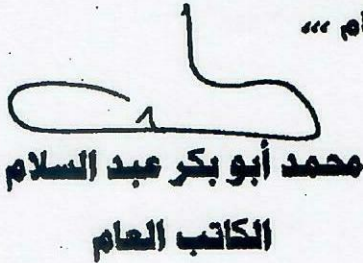 محمد أبو بكر عبد السلام
الكاتب العام